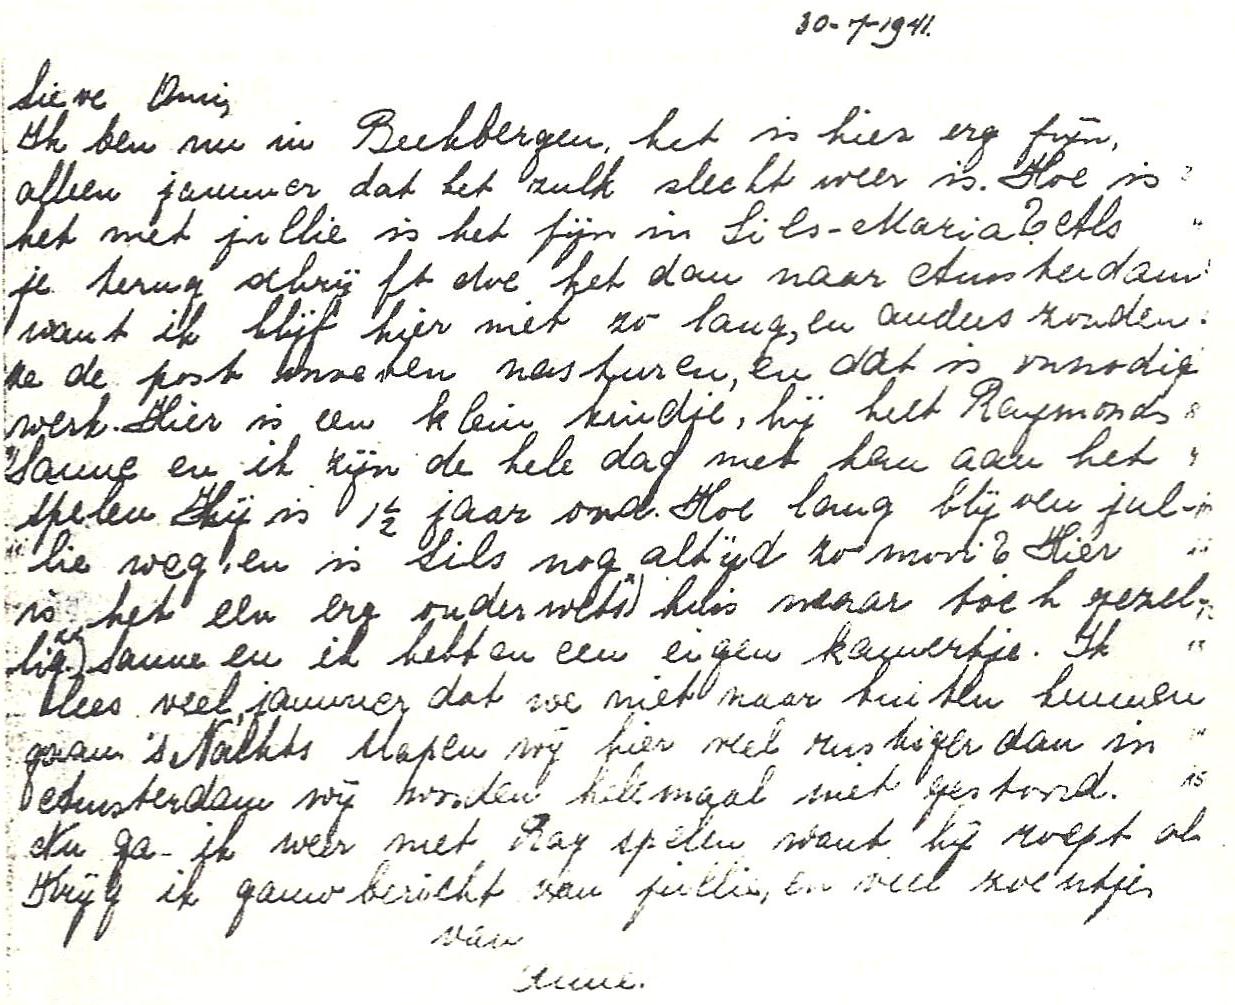 30-7-1941.
Lieve Omi,
Ik ben nu in Beekbergen, het is hier erg fijn,
alleen jammer dat het zulk slecht weer is. Hoe is
het met jullie is het fijn in Sils-Maria? Als
je terug schrijft doe het dan naar Amsterdam
want ik blijf hier niet zo lang, en anders zouden
ze de post nasturen, en dat is onnodig
werk. Hier is een klein kindje, hij heet Raymond
Sanne en ik zijn de hele dag met hem aan het
spelen Hij is 1½ jaar oud. Hoe lang blijven jul-
lie weg, en is Sils nog altijd zo mooi? Hier
is het een erg ouderwets huis maar toch gezel-
lig. Sanne en ik hebben een eigen kamertje. Ik
lees veel, jammer dat we niet naar buiten kunnen
gaan. 's Nachts slapen wij hier veel rustiger dan in
Amsterdam wij worden helemaal niet gestoord.
Nu ga ik weer met Ray spelen want hij roept al
Krijg ik gauw bericht van jullie, en veel zoentjes
van
Anne.